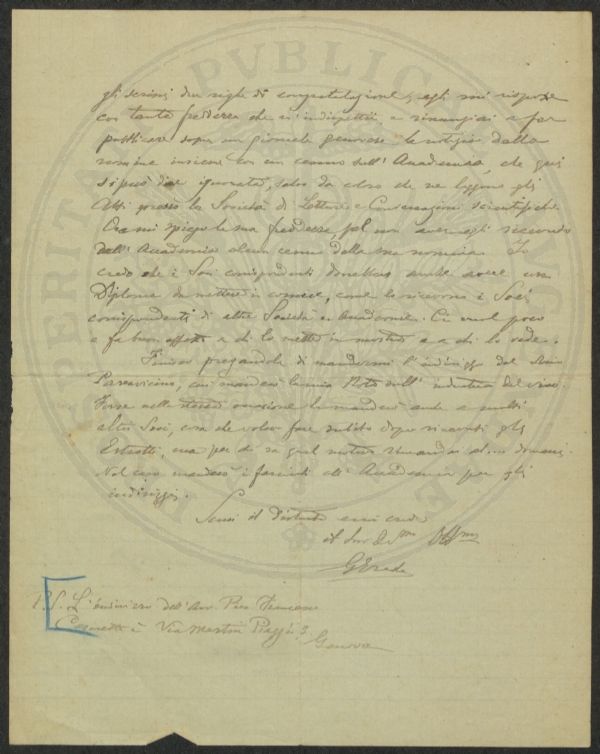 gli scrissi due righe di congratulazione, egli mi rispose
con tanta freddezza che m'indispettii e rinunziai a far
pubblicare sopra un giornale genovese la notizia della
nomina insieme con un cenno sull' Accademia, che quì
si può dire ignorata, salvo da coloro che ne leggono gli
Atti presso la Società di Letture e Conversazioni scientifiche
Ora mi spiego la sua freddezza, pel non aver egli ricevuto
dall' Accademia alcun cenno della sua nomina. Io
credo che i Soci corrispondenti dovrebbero anche avere un
Diploma da mettere in cornice, come lo ricevono i Soci
corrispondenti di altre Società e Accademie. Ci vuol poco
e fa buon effetto a chi lo mette in mostra e a chi lo vede.
Finisco pregandola di mandarmi l'indirizzo del
cui manderò la mia Nota sull' industria del vino.
Forse nella stessa occasione la manderò anche a molti
altri Soci, cosa che volevo fare subito dopo ricevuti gli
Estratti, ma per di
Nel caso manderò i fascicoli all' Accademia per gli
indirizzi.
Scusi il disturbo e mi creda
il Suo
P.S. L'indirizzo dell' Avv. Francesco
è Via Martin Piaggio, 3
Genova